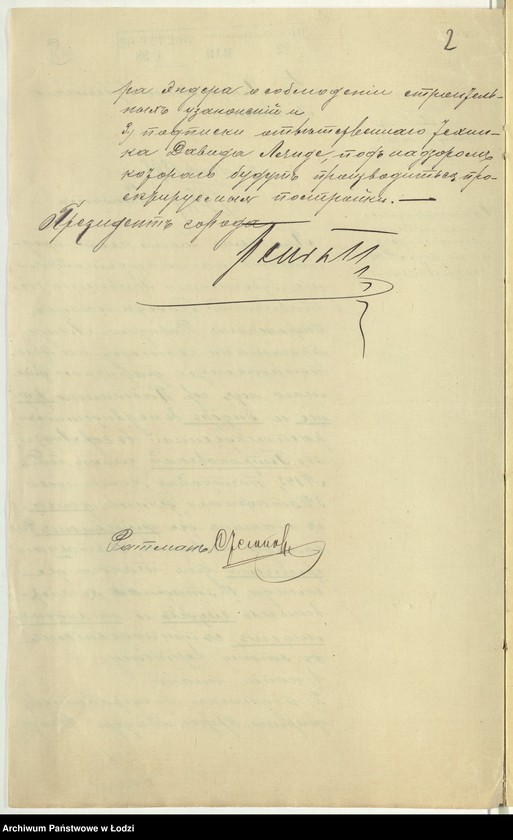 2
ра Яндера о соблюдении строитель-
ныхъ узаконений и
2) подписки отвѣтственнаго техни-
ка Давида Ланде, подъ надзоромъ
котораго будутъ производиться про-
ектируемыя постройки. —
Президентъ города
Ратманъ
Archiwum Państwowe w Łodzi